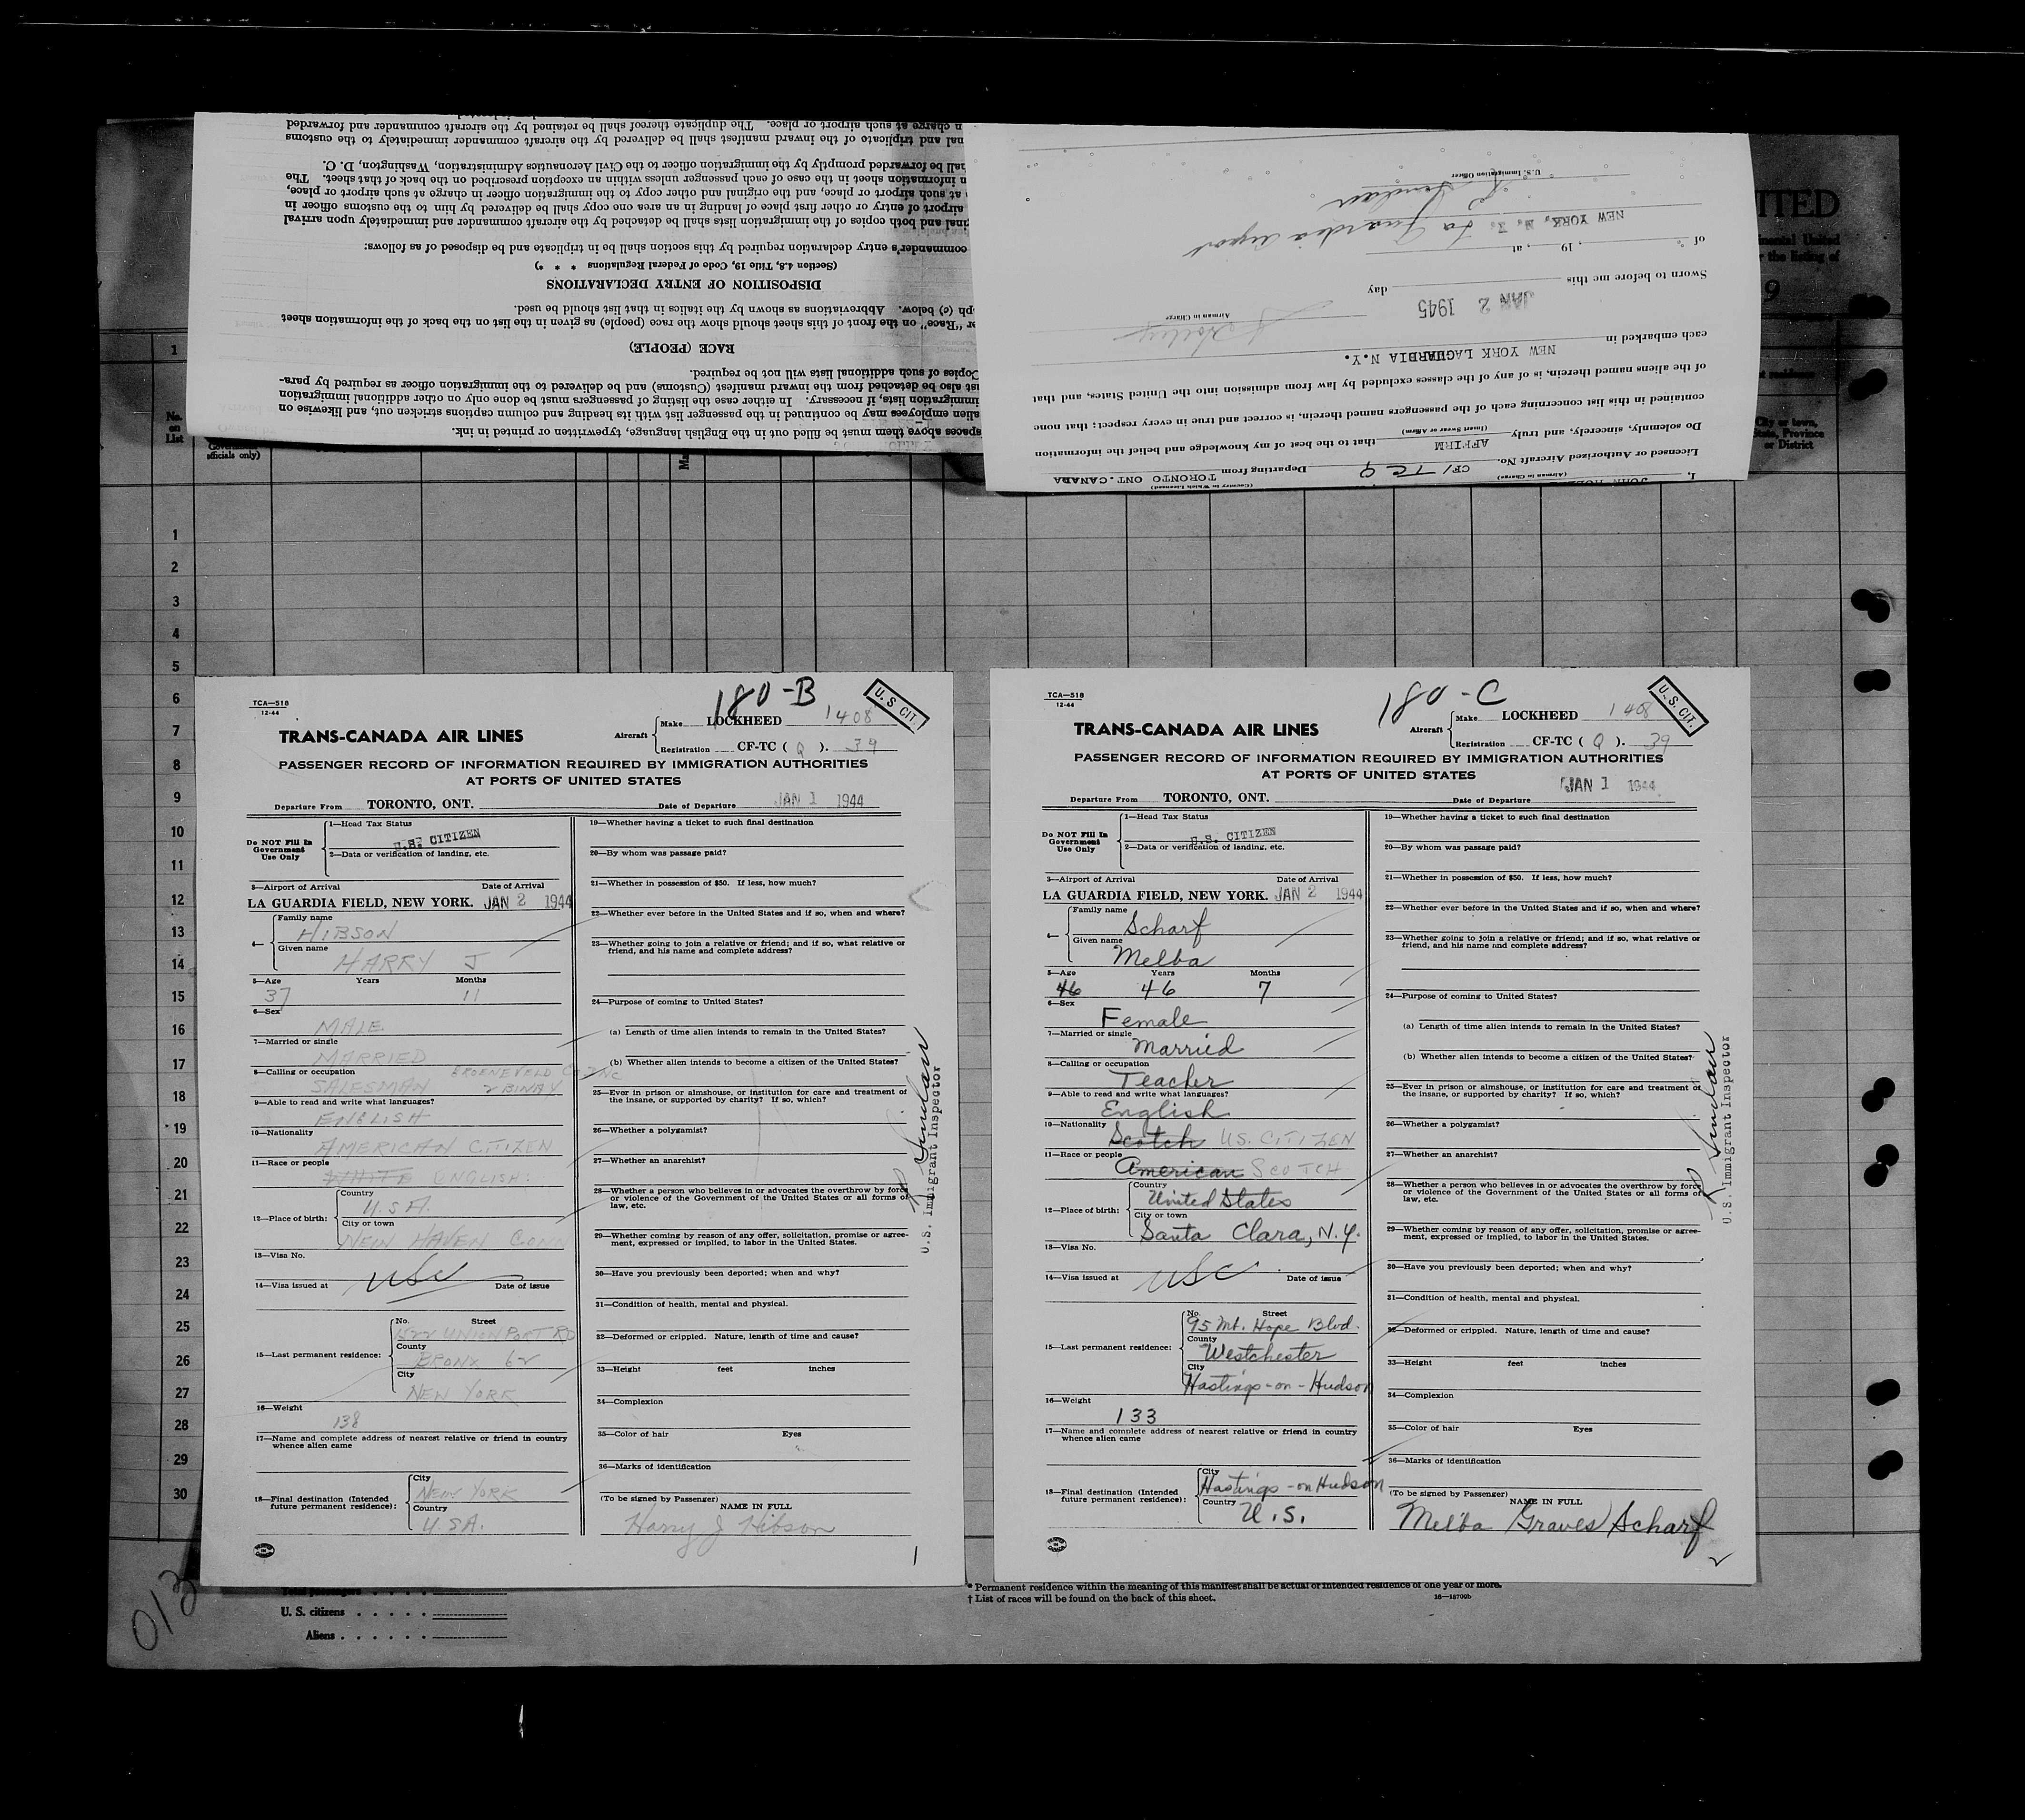 ITED
inental United
r the listing of
9
nal and triplicate of the inward manifest shall be delivered by the aircraft commander immediately to the customs
n charge at such airport or place. The duplicate thereof shall be retained by the aircraft commander and forwarded
spaces above them must be filled out in the English language, typewritten or printed in ink.
alien employees may be continued in the passenger list with its heading and column captions stricken out, and likewise on
immigration lists, if necessary. In either case the listing of passengers must be done only on other additional immigration
ust also be detached from the inward manifest (Customs) and be delivered to the immigration officer as required by para-
Copies of such additional lists will not be required.
RACE (PEOPLE)
er "Race" on the front of this sheet should show the race (people) as given in the list on the back of the information sheet
ph (c) below. Abbreviations as shown by the italics in that list should be used.
DISPOSITION OF ENTRY DECLARATIONS
(Section 4.8, Title 19, Code of Federal Regulations * * *)
commander's entry declaration required by this section shall be in triplicate and be disposed of as follows:
ginal and both copies of the immigration lists shall be detached by the aircraft commander and immediately upon arrival
airport of entry or other first place of landing in an area one copy shall be delivered by him to the customs officer in
at such airport or place, and the original and other copy to the immigration officer in charge at such airport or place,
n information sheet in the case of each passenger unless within an exception prescribed on the back of that sheet. The
all be forwarded promptly by the immigration officer to the Civil Aeronautics Administration, Washington, D. C.
I, JOHN
(Airman in Charge)
(Country in Which Licensed)
Licensed or Authorized Aircraft No. CF/ TC Q Departing from TORONTO ONT. CANADA
Do solemnly, sincerely, and truly AFFIRM that to the best of my knowledge and belief the information
(Insert Swear or Affirm)
contained in this list concerning each of the passengers named therein, is correct and true in every respect; that none
of the aliens named therein, is of any of the classes excluded by law from admission into the United States, and that
each embarked in NEW YORK LAGUARDIA N.Y.
Airman in Charge
Sworn to before me this JAN 2 1945 day
of , 19 , at La Guardia Airport
NEW YORK, N. Y.
U.S. Immigration Officer
No. on List
officials only)
City or town, State, Province or District
1
1
2
3
4
5
6
7
8
9
10
11
12
13
14
15
16
17
18
19
20
21
22
23
24
25
26
27
28
29
30
180-B
U. S. CIT.
TCA—518
12-44
TRANS-CANADA AIR LINES
Aircraft
Make LOCKHEED 1408
Registration CF-TC ( Q ). 39
PASSENGER RECORD OF INFORMATION REQUIRED BY IMMIGRATION AUTHORITIES
AT PORTS OF UNITED STATES
Departure From TORONTO, ONT. Date of Departure JAN 1 1944
Do NOT Fill In
Government
Use Only
1—Head Tax Status
U.S. CITIZEN
2—Data or verification of landing, etc.
3—Airport of Arrival Date of Arrival
LA GUARDIA FIELD, NEW YORK. JAN 2 1944
4—
Family name
HIBSON
Given name
HARRY J
5—Age Years Months
37 11
6—Sex
MALE
7—Married or single
MARRIED
8—Calling or occupation
SALESMAN
& BINBY
9—Able to read and write what languages?
ENGLISH
10—Nationality
AMERICAN CITIZEN
11—Race or people
WHITE ENGLISH
12—Place of birth:
Country
U.S.A.
City or town
NEW HAVEN CONN
13—Visa No.
14—Visa issued at USC Date of issue
15—Last permanent residence:
No. Street
1522 UNIONPORT RD
County
BRONX 62
City
NEW YORK
16—Weight
138
17—Name and complete address of nearest relative or friend in country
whence alien came
18—Final destination (Intended
future permanent residence):
City
NEW YORK
Country
U.S.A.
19—Whether having a ticket to such final destination
20—By whom was passage paid?
21—Whether in possession of $50. If less, how much?
22—Whether ever before in the United States and if so, when and where?
23—Whether going to join a relative or friend; and if so, what relative or
friend, and his name and complete address?
24—Purpose of coming to United States?
(a) Length of time alien intends to remain in the United States?
(b) Whether alien intends to become a citizen of the United States?
25—Ever in prison or almshouse, or institution for care and treatment of
the insane, or supported by charity? If so, which?
26—Whether a polygamist?
27—Whether an anarchist?
28—Whether a person who believes in or advocates the overthrow by force
or violence of the Government of the United States or all forms of
law, etc.
29—Whether coming by reason of any offer, solicitation, promise or agree-
ment, expressed or implied, to labor in the United States.
30—Have you previously been deported; when and why?
31—Condition of health, mental and physical.
32—Deformed or crippled. Nature, length of time and cause?
33—Height feet inches
34—Complexion
35—Color of hair Eyes
36—Marks of identification
(To be signed by Passenger)
NAME IN FULL
Harry J Hibson
1
U.S. Immigrant Inspector
180-C
U. S. CIT.
TCA—518
12-44
TRANS-CANADA AIR LINES
Aircraft
Make LOCKHEED 1408
Registration CF-TC ( Q ). 39
PASSENGER RECORD OF INFORMATION REQUIRED BY IMMIGRATION AUTHORITIES
AT PORTS OF UNITED STATES
Departure From TORONTO, ONT. Date of Departure JAN 1 1944
Do NOT Fill In
Government
Use Only
1—Head Tax Status
U.S. CITIZEN
2—Data or verification of landing, etc.
3—Airport of Arrival Date of Arrival
LA GUARDIA FIELD, NEW YORK. JAN 2 1944
4—
Family name
Scharf
Given name
Melba
5—Age Years Months
46 46 7
6—Sex
Female
7—Married or single
Married
8—Calling or occupation
Teacher
9—Able to read and write what languages?
English
10—Nationality
Scotch U.S. CITIZEN
11—Race or people
American SCOTCH
12—Place of birth:
Country
United States
City or town
Santa Clara, N.Y.
13—Visa No.
14—Visa issued at USC Date of issue
15—Last permanent residence:
No. Street
95 Mt. Hope Blvd.
County
Westchester
City
Hastings-on-Hudson
16—Weight
133
17—Name and complete address of nearest relative or friend in country
whence alien came
18—Final destination (Intended
future permanent residence):
City
Hastings-on Hudson
Country
U.S.
19—Whether having a ticket to such final destination
20—By whom was passage paid?
21—Whether in possession of $50. If less, how much?
22—Whether ever before in the United States and if so, when and where?
23—Whether going to join a relative or friend; and if so, what relative or
friend, and his name and complete address?
24—Purpose of coming to United States?
(a) Length of time alien intends to remain in the United States?
(b) Whether alien intends to become a citizen of the United States?
25—Ever in prison or almshouse, or institution for care and treatment of
the insane, or supported by charity? If so, which?
26—Whether a polygamist?
27—Whether an anarchist?
28—Whether a person who believes in or advocates the overthrow by force
or violence of the Government of the United States or all forms of
law, etc.
29—Whether coming by reason of any offer, solicitation, promise or agree-
ment, expressed or implied, to labor in the United States.
30—Have you previously been deported; when and why?
31—Condition of health, mental and physical.
32—Deformed or crippled. Nature, length of time and cause?
33—Height feet inches
34—Complexion
35—Color of hair Eyes
36—Marks of identification
(To be signed by Passenger)
NAME IN FULL
Melba Graves Scharf
2
U.S. Immigrant Inspector
013
Total passengers
U. S. citizens
Aliens
* Permanent residence within the meaning of this manifest shall be actual or intended residence of one year or more.
† List of races will be found on the back of this sheet.
16—18709b